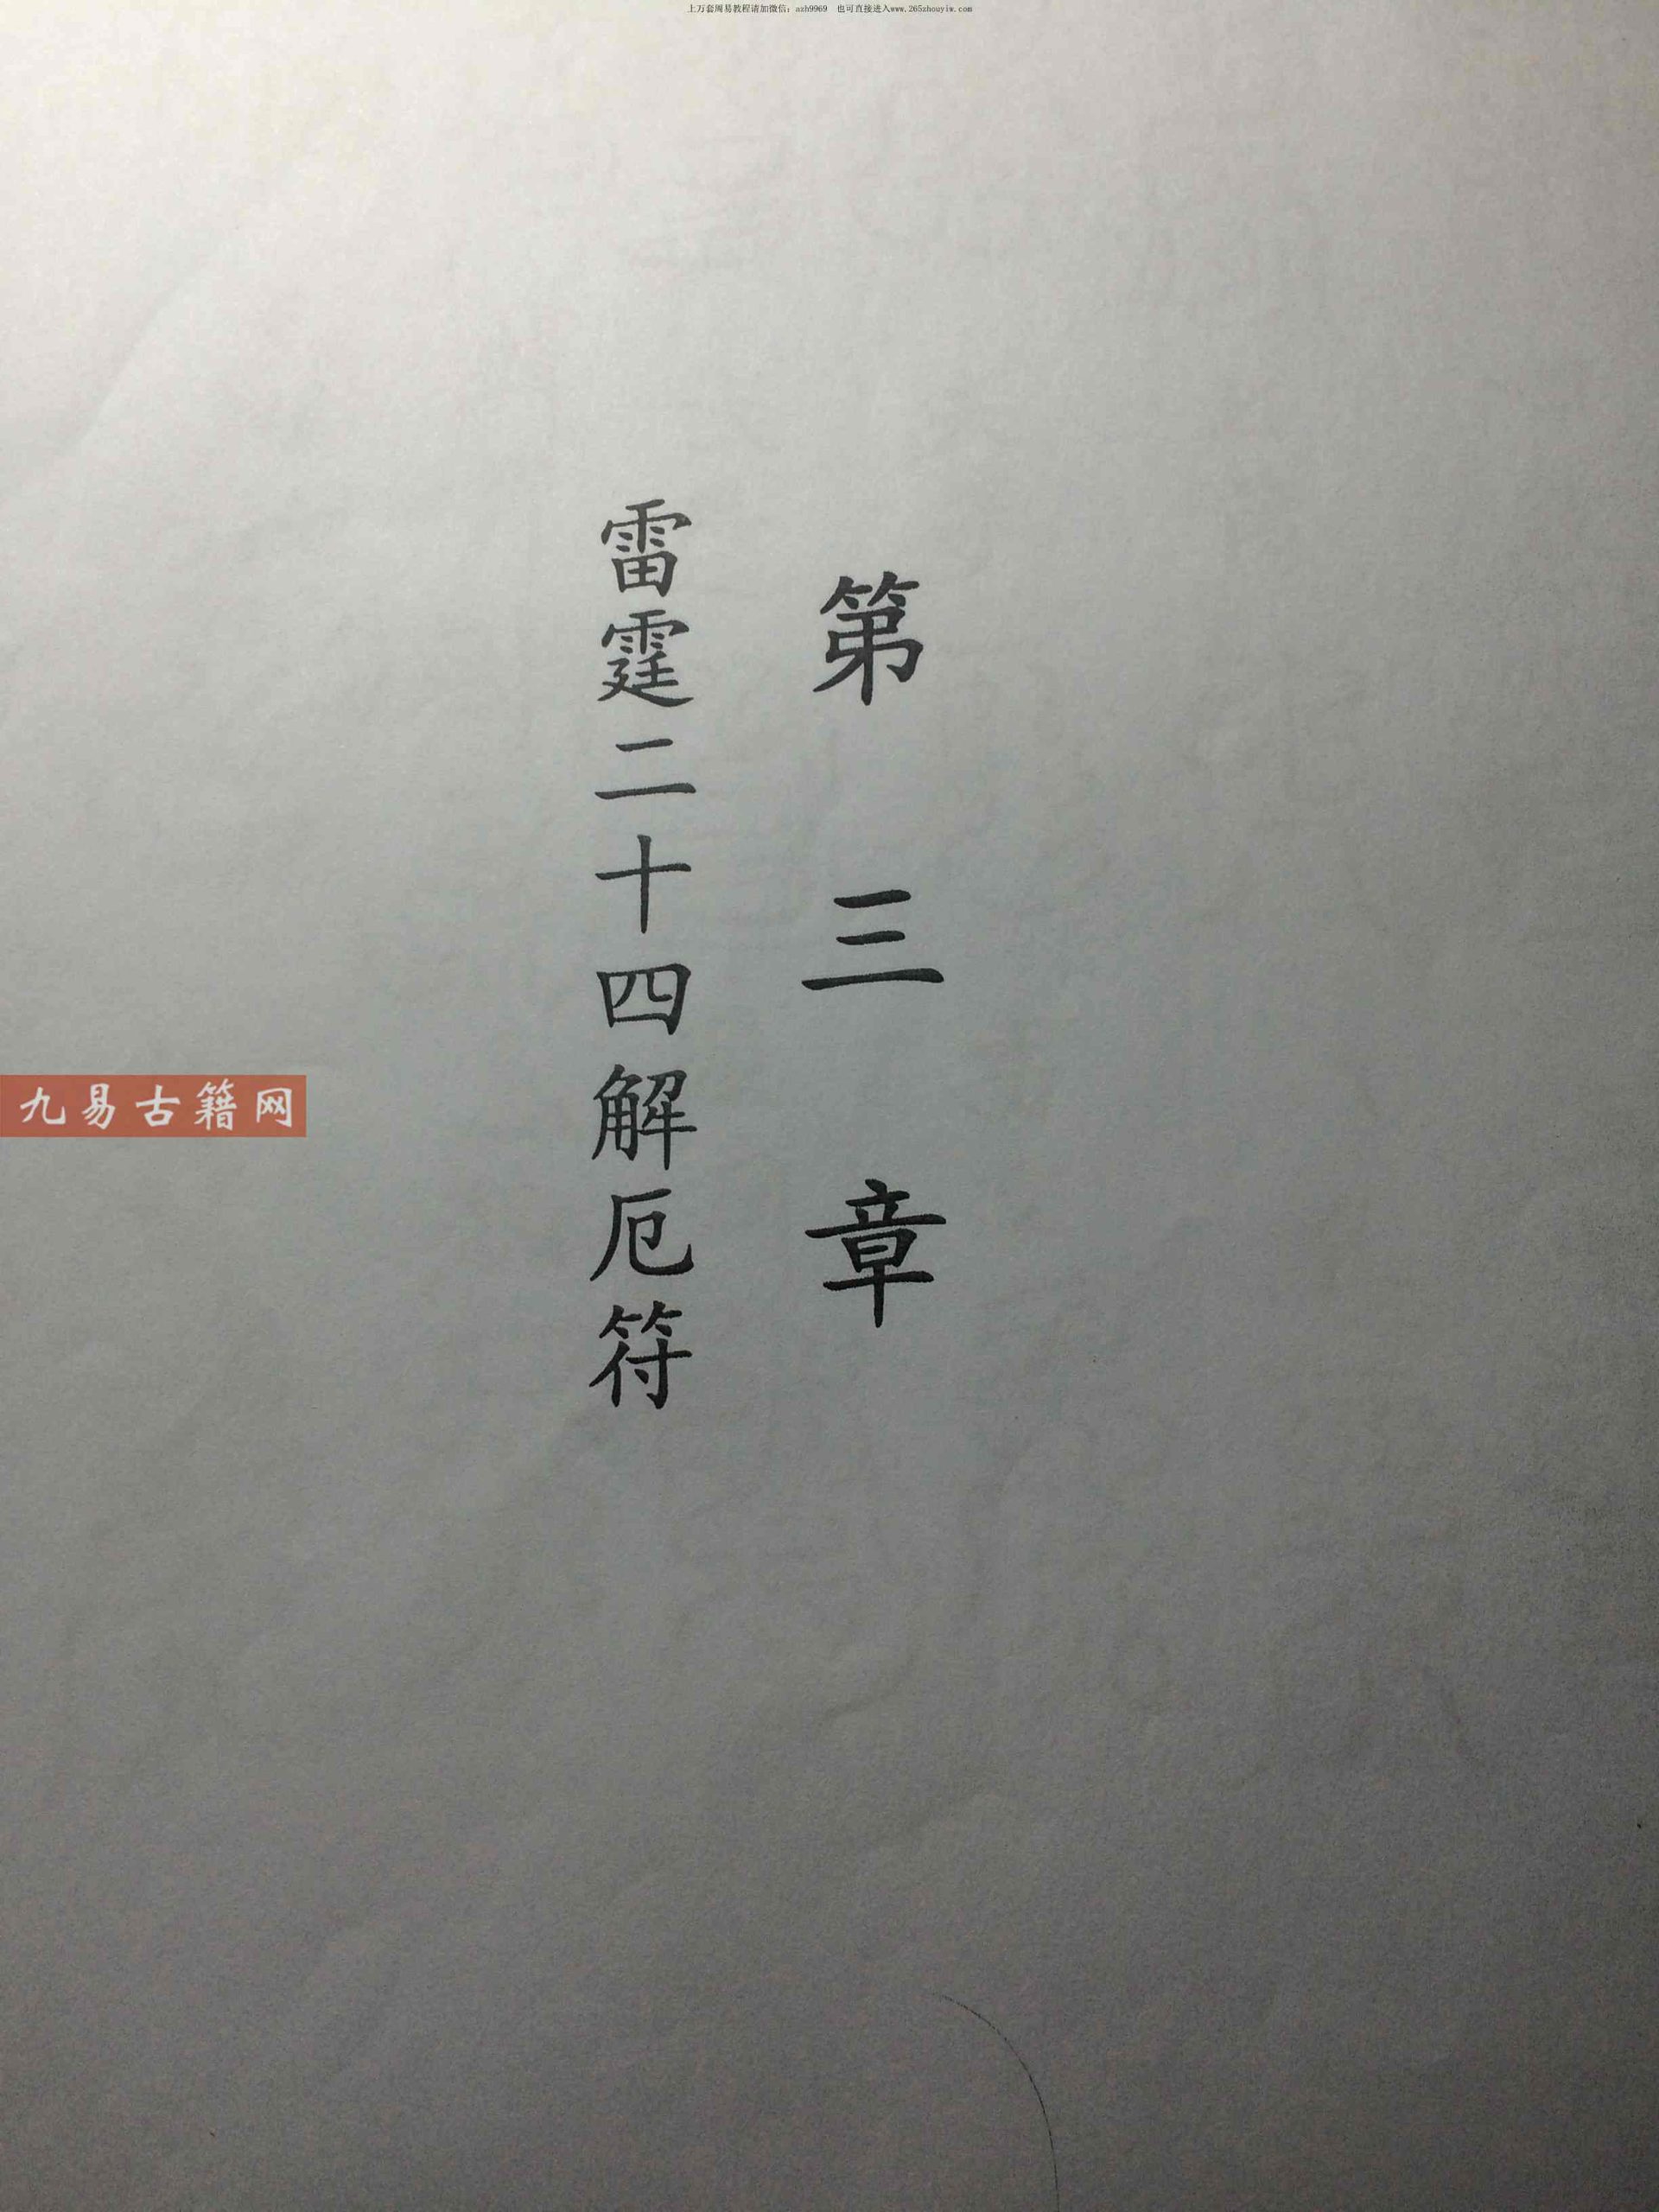 上万套周易教程请加微信：azh9969 也可直接进入www.265zhouyiw.com
第三章
雷霆二十四解厄符
九易古籍网